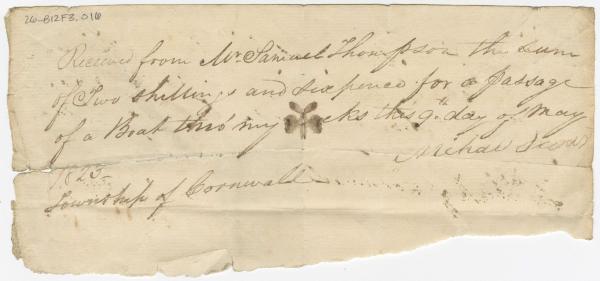 26-B12F3.016
Received from Mr Samuel Thompson the Sum
of Two Shillings and Sixpence for a Passage
of a Boat thro' my cks this 9th day of May
1823- Michael
Township of Cornwall